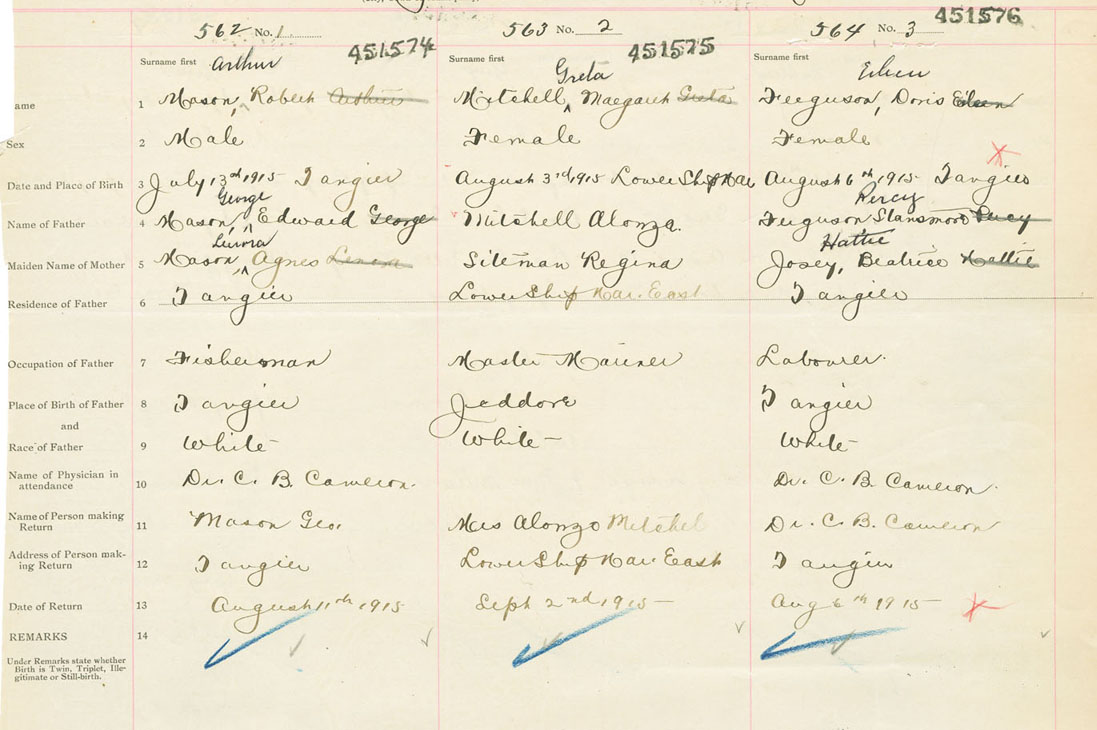 562 No. 1 451574 563 No. 2 451575 564 No. 3 451576
Surname first Arthur Surname first Greta Surname first Eileen
ame 1 Mason, Robert Arthur Mitchell, Margaret Greta Ferguson, Doris Eileen
Sex 2 Male Female Female
Date and Place of Birth 3 July 13th 1915 Tangier August 3rd 1915 Lower Ship Har August 6th 1915 Tangier
George Percy
Name of Father 4 Mason, Edward George Mitchell Alonza. Ferguson Percy
Hattie
Maiden Name of Mother 5 Mason, Agnes Siteman Regina Josey, Beatrice Hattie
Residence of Father 6 Tangier Lower Ship Har. East Tangier
Occupation of Father 7 Fisherman Master Mariner Labourer.
Place of Birth of Father 8 Tangier Jeddore Tangier
and
Race of Father 9 White White – White –
Name of Physician in
attendance 10 Dr. C. B. Cameron. Dr. C. B. Cameron.
Name of Person making
Return 11 Mason Geo. Mrs Alonzo Mitchel Dr. C. B. Cameron
Address of Person mak-
ing Return 12 Tangier Lower Ship Har. East Tangier
Date of Return 13 August 11th 1915 Sept 2nd 1915 – Aug 6th 1915 –
REMARKS 14
Under Remarks state whether
Birth is Twin, Triplet, Ille-
gitimate or Still-birth.